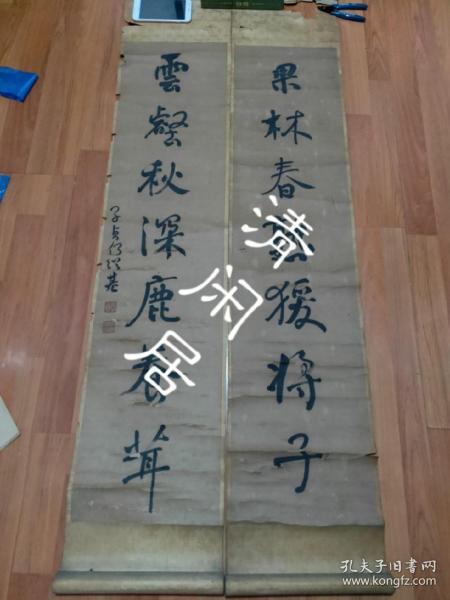 果林春熟猨将子
雲壑秋深鹿養茸
子貞何紹基
清闲居
孔夫子旧书网
www.kongfz.com